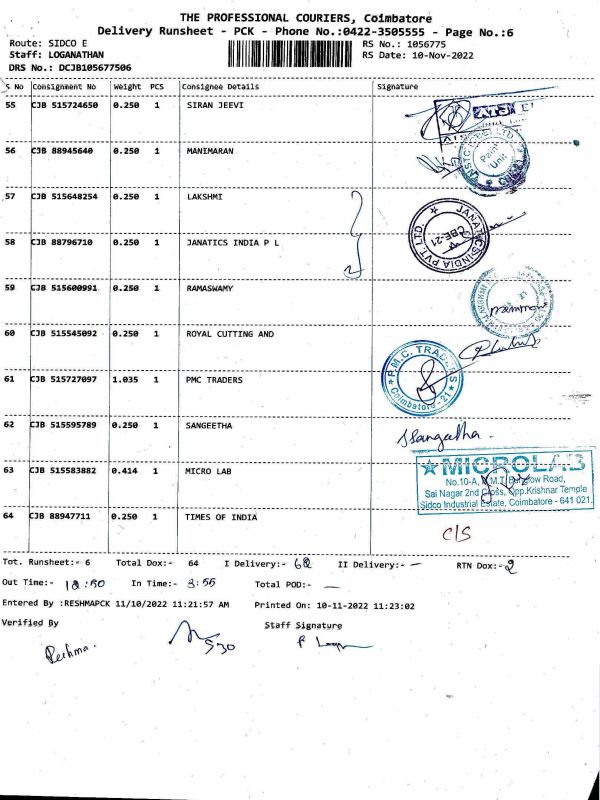 THE PROFESSIONAL COURIERS, Coimbatore
Delivery Runsheet - PCK - Phone No.:0422-3505555 - Page No.:6
Route: SIDCO E
Staff: LOGANATHAN
DRS No.: DCJB105677506
RS No.: 1056775
RS Date: 10-Nov-2022
S No Consignment No Weight PCS Consignee Details Signature
55 CJB 515724650 0.250 1 SIRAN JEEVI
56 CJB 88945640 0.250 1 MANIMARAN
57 CJB 515648254 0.250 1 LAKSHMI
58 CJB 88796710 0.250 1 JANATICS INDIA P L
JANATICS INDIA PVT. LTD. CBE-21
59 CJB 515600991 0.250 1 RAMASWAMY
60 CJB 515545092 0.250 1 ROYAL CUTTING AND
61 CJB 515727097 1.035 1 PMC TRADERS
P.M.C. TRADERS Coimbatore - 21
62 CJB 515595789 0.250 1 SANGEETHA
Sangeetha.
63 CJB 515583882 0.414 1 MICRO LAB
MICROLAB
No.10-A, Road,
Sai Nagar 2nd Cross, Opp.Krishnar Temple
Sidco Industrial Estate, Coimbatore - 641 021.
64 CJB 88947711 0.250 1 TIMES OF INDIA
C/S
Tot. Runsheet:- 6 Total Dox:- 64 I Delivery:- 62 II Delivery:- - RTN Dox:- 2
Out Time:- In Time:- 3:55 Total POD:- -
Entered By :RESHMAPCK 11/10/2022 11:21:57 AM Printed On: 10-11-2022 11:23:02
Verified By Staff Signature
Reshma.